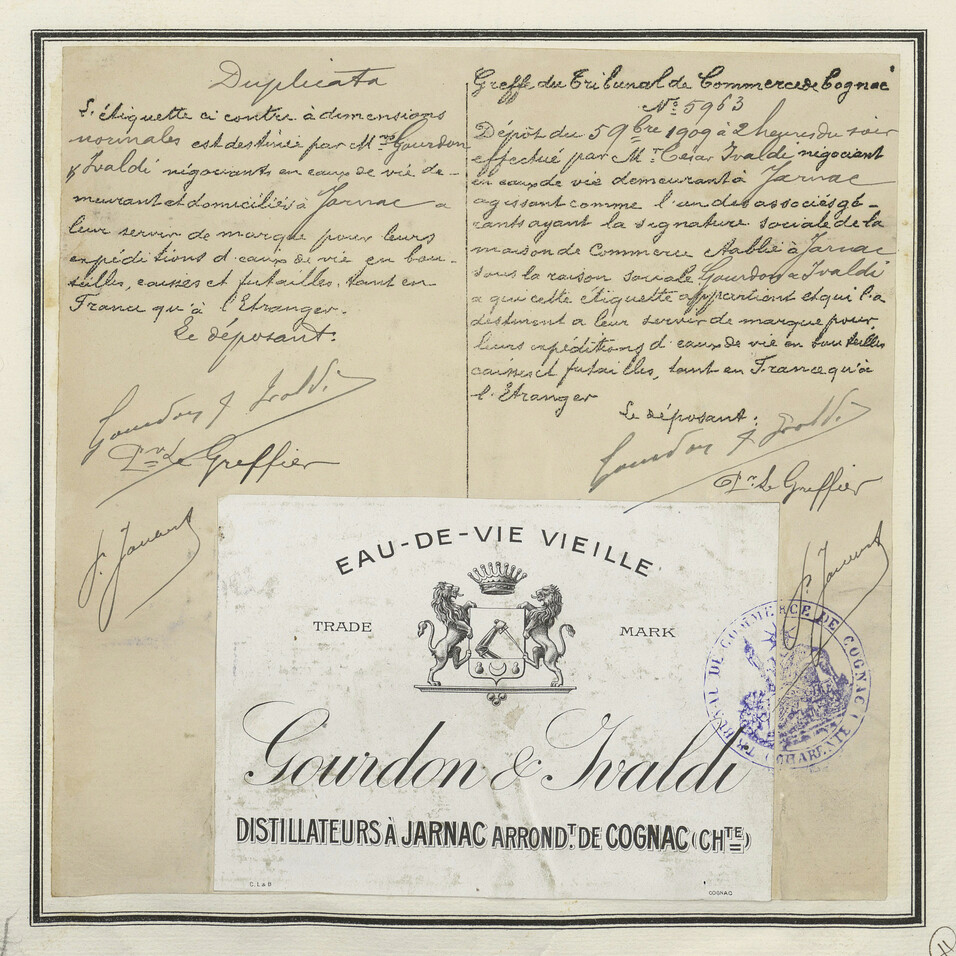 Duplicata
L'étiquette ci contre à dimensions
normales est destinée par M.rs Gourdon
& Ivaldi négociants en eaux de vie de-
meurant et domiciliés à Jarnac a
leur servir de marque pour leurs
expéditions d'eaux de vie en bou-
teilles, caisses et futailles, tant en
France qu'à l'Etranger.
Le déposant:
Gourdon & Ivaldi
Pr. Le Greffier
Greffe du Tribunal de Commerce de Cognac
No. 5963
Dépôt du 5 9bre 1909 à 2 heures du soir
effectué par M.r César Ivaldi négociant
en eaux de vie demeurant à Jarnac
agissant comme l'un des associés gé-
rants ayant la signature sociale de la
maison de Commerce établie à Jarnac
sous la raison sociale Gourdon & Ivaldi
a qui cette étiquette appartient et qui l'a
destinent a leur servir de marque pour
leurs expéditions d'eaux de vie en bouteilles
caisses et futailles, tant en France qu'à
l'Etranger
Le déposant:
Gourdon & Ivaldi
Pr. Le Greffier
EAU-DE-VIE VIEILLE
TRADE MARK
Gourdon & Ivaldi
DISTILLATEURS À JARNAC ARRONDT. DE COGNAC (CHTE)
C. L & B
COGNAC
TRIBUNAL DE COMMERCE DE COGNAC (CHARENTE)
11